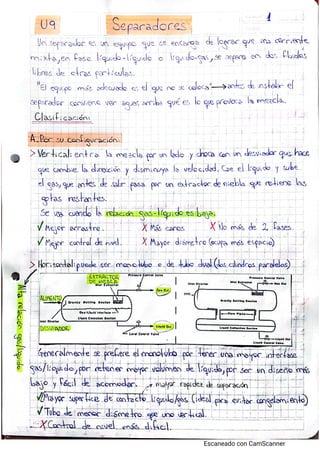 1
U9
Separadores
Un separador es un equipo que se encarga de lograr que una corriente
mixta, en fase líquido-líquido o líquido-gas, se separe en dos fluidos
libres de otras partículas.
"El equipo más adecuado es el que no se coloca" → antes de instalar el
separador conviene ver aguas arriba qué es lo que provoca la mezcla.
Clasificación:
A. Por su configuración:
> Vertical: entra la mezcla por un lado y choca con un desviador que hace
que cambie la dirección y disminuya la velocidad. Cae el líquido y sube
el gas, que antes de salir pasa por un extractor de niebla que retiene las
gotas restantes.
Se usa cuando la relación gas-líquido es baja.
✓ Mejor arrastre. X Más caros X No más de 2 fases.
✓ Mejor control de nivel. X Mayor diámetro (ocupa más espacio)
> Horizontal: puede ser monotubo o de tubo dual (dos cilindros paralelos)
Alta relación gas/líquido
EXTRACTOR DE NIEBLA
Pressure Control Valve
Gas Out
ALIMENTO
Gravity Settling Section
Gas-Liquid Interface
Liquid Collection Section
Liquid Out
DESVIADOR
Level Control Valve
Pressure Control Valve
Gravity Settling Section
Flow Pipes
Liquid Collection Section
Level Control Valve
Generalmente se prefiere el monotubo por tener una mayor interfase
gas/líquido, por retener mayor volumen de líquido, por ser un diseño más
bajo y fácil de acomodar. → mayor rapidez de separación
✓ Mayor superficie de contacto líquido/gas (ideal para evitar congelamiento)
✓ Tubo de menor diámetro que uno vertical.
X Control de nivel más difícil.
Escaneado con CamScanner